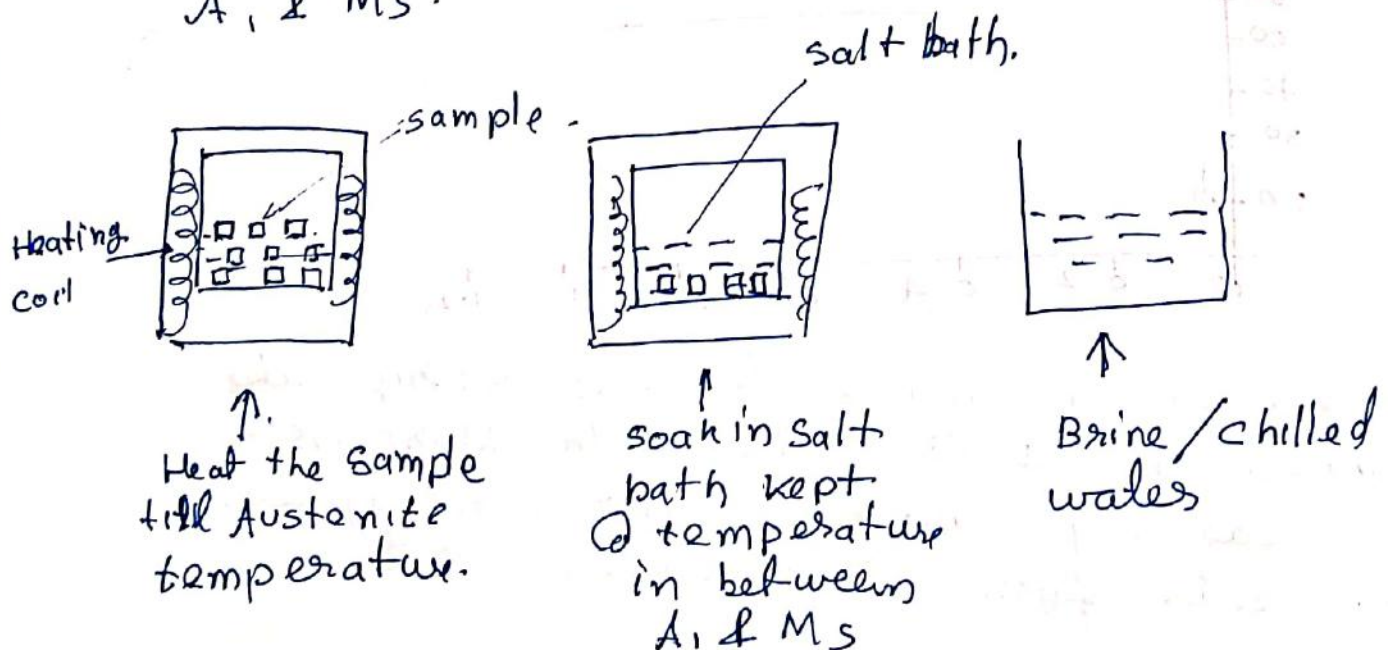 A, & Ms.
salt bath.
sample -
Heating
coil
Heat the sample
till Austenite
temperature.
soak in salt
bath kept
@ temperature
in between
A, & Ms
Brine / chilled
water